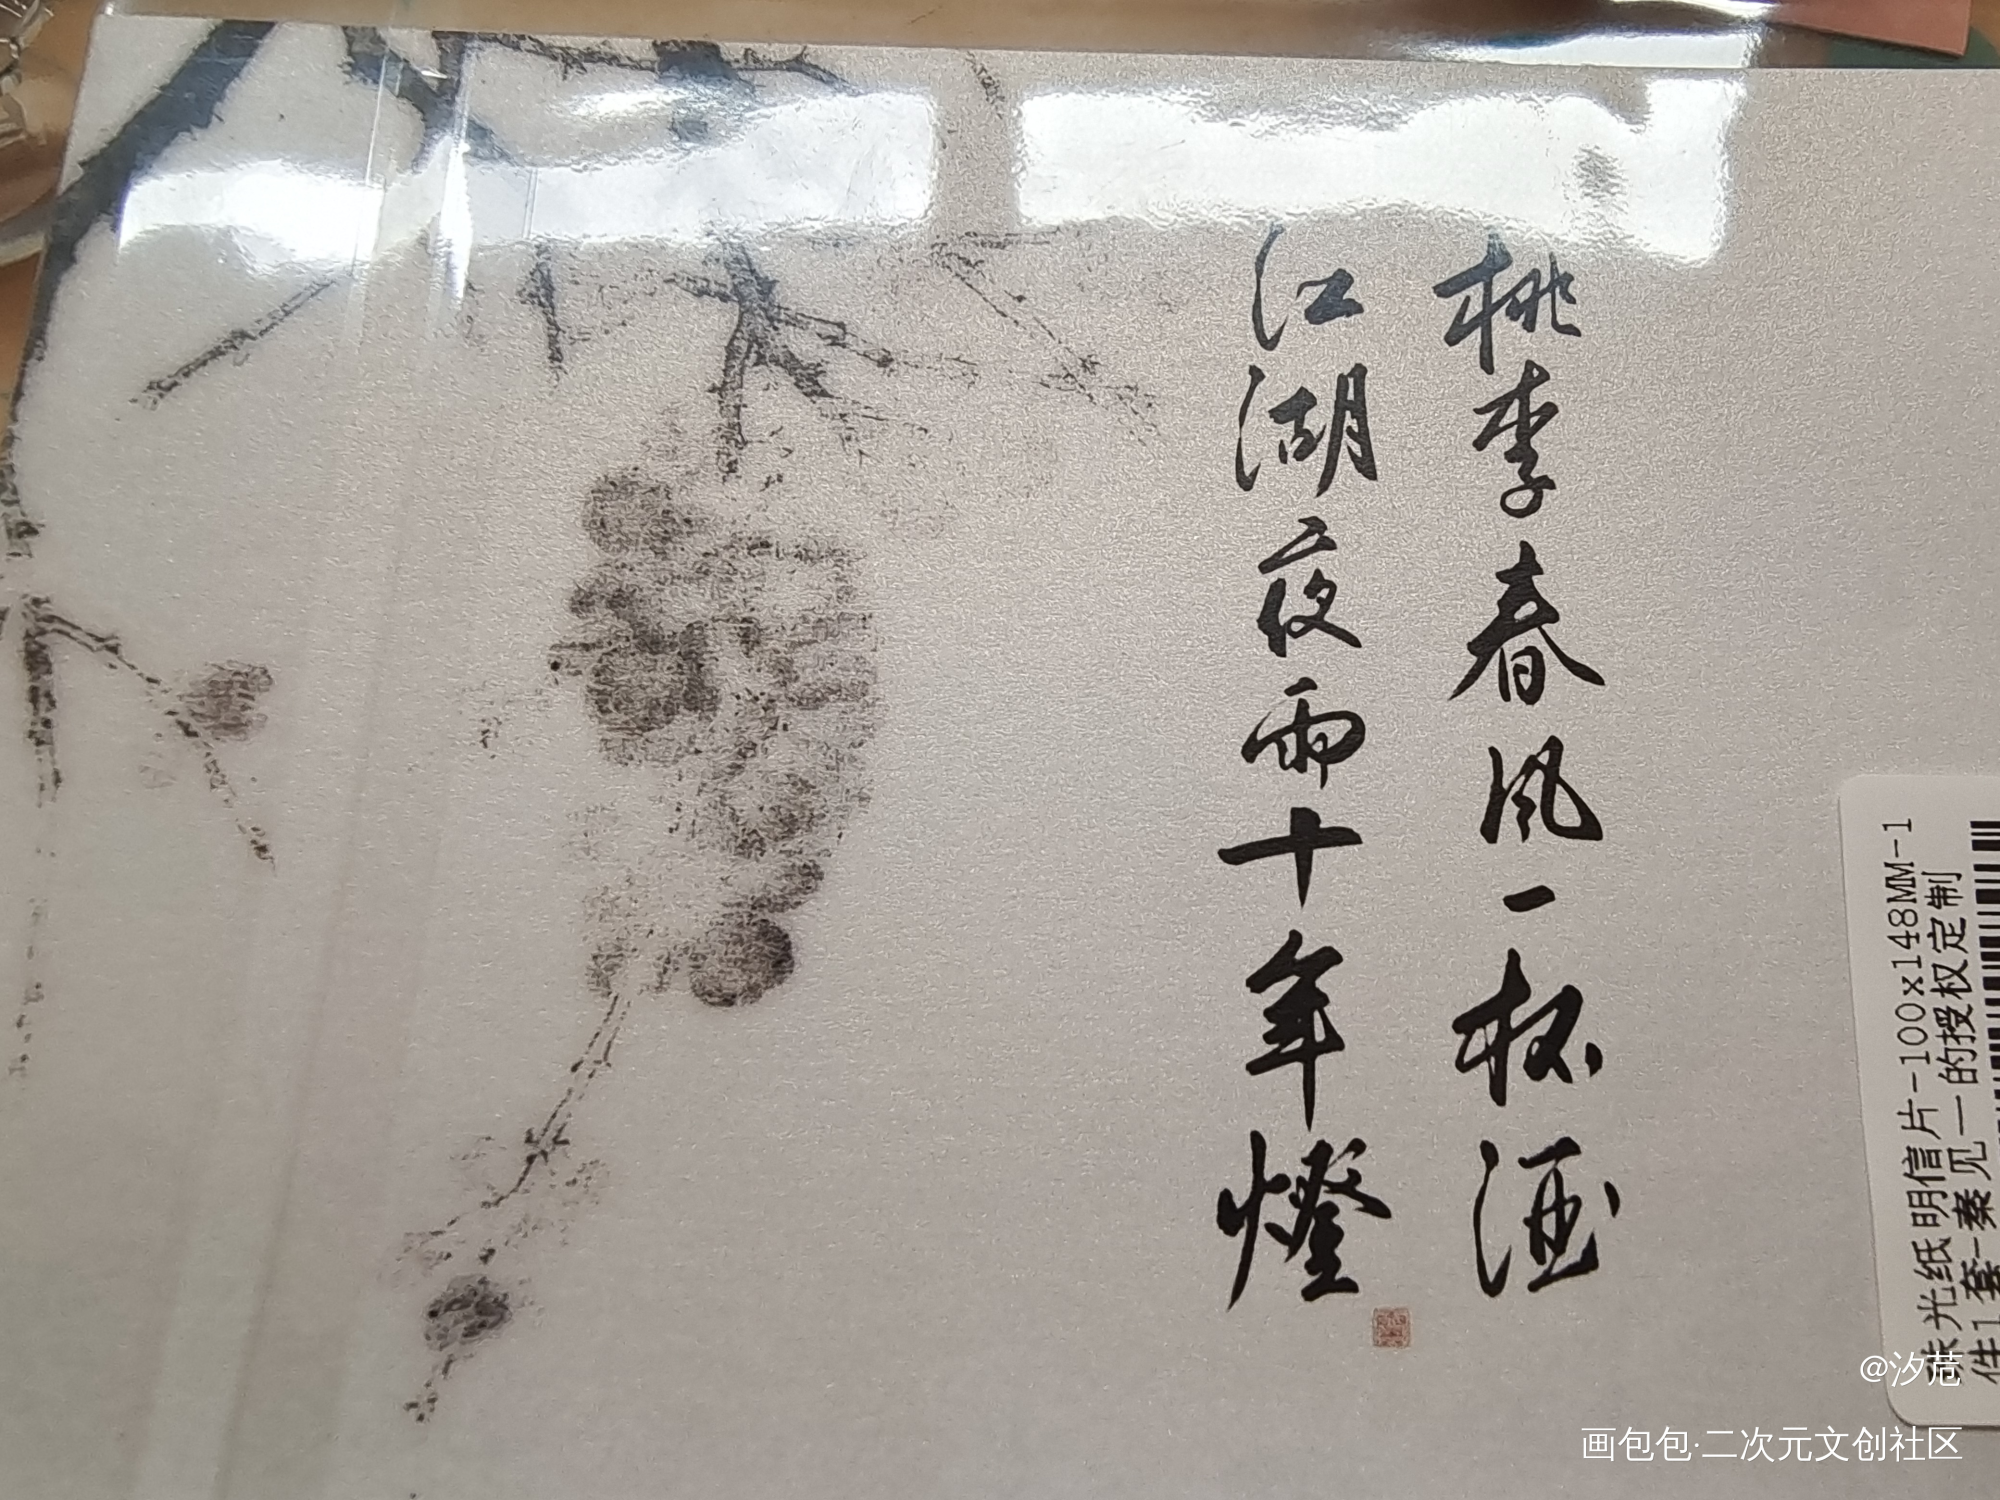 桃李春风一杯酒
江湖夜雨十年燈
珠光纸明信片-100x148MM-1
件1套-秦见一的授权定制
@汐苊
画包包·二次元文创社区